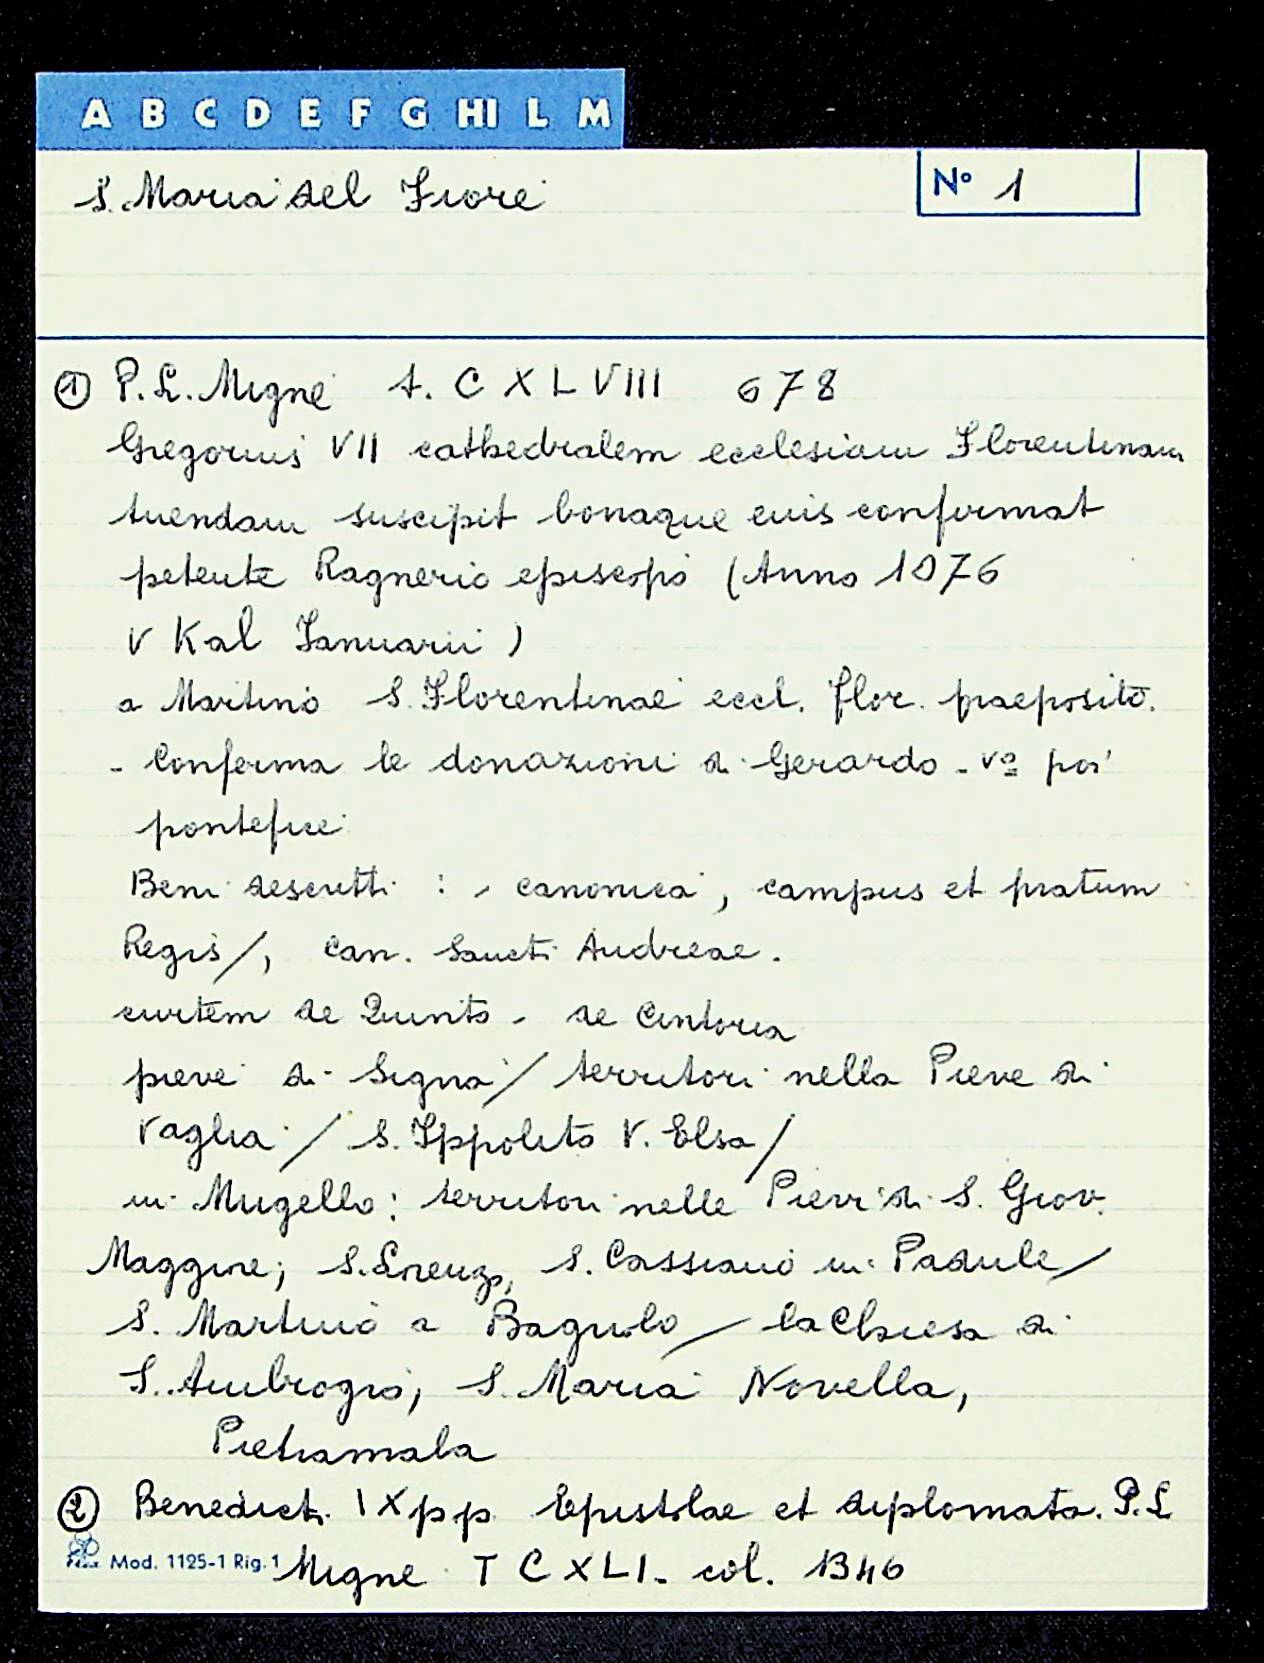 A B C D E F G HI L M
S. Maria del Fiore
N° 1
① P.L. Migne t. CXLVIII 678
Gregorius VII cathedralem ecclesiam Florentinam
tuendam suscipit bonaque euis confirmat
petente Ragnerio episcopo (Anno 1076
V Kal Ianuarii)
a Martino S. Florentinae eccl. flor. praeposito.
- Conferma le donazioni di Gerardo - vo poi
pontefice
Beni descritti : - canonica, campus et pratum
Regis/, can. Sancti Andreae.
curtem de Quinto - de Cintoria
pieve di Signa/ territori nella Pieve di
Vaglia / S. Ippolito V. Elsa/
in Mugello: territori nelle Pievi di S. Giov.
Maggiore; S. Lorenzo, S. Cassiano in Padule/
S. Martino a Bagnolo / la Chiesa di
S. Ambrogio, S. Maria Novella,
Pietramala
② Benedicti IX pp Epistolae et diplomata. P.L
Mod. 1125-1 Rig. 1 Migne T CXLI - col. 1346